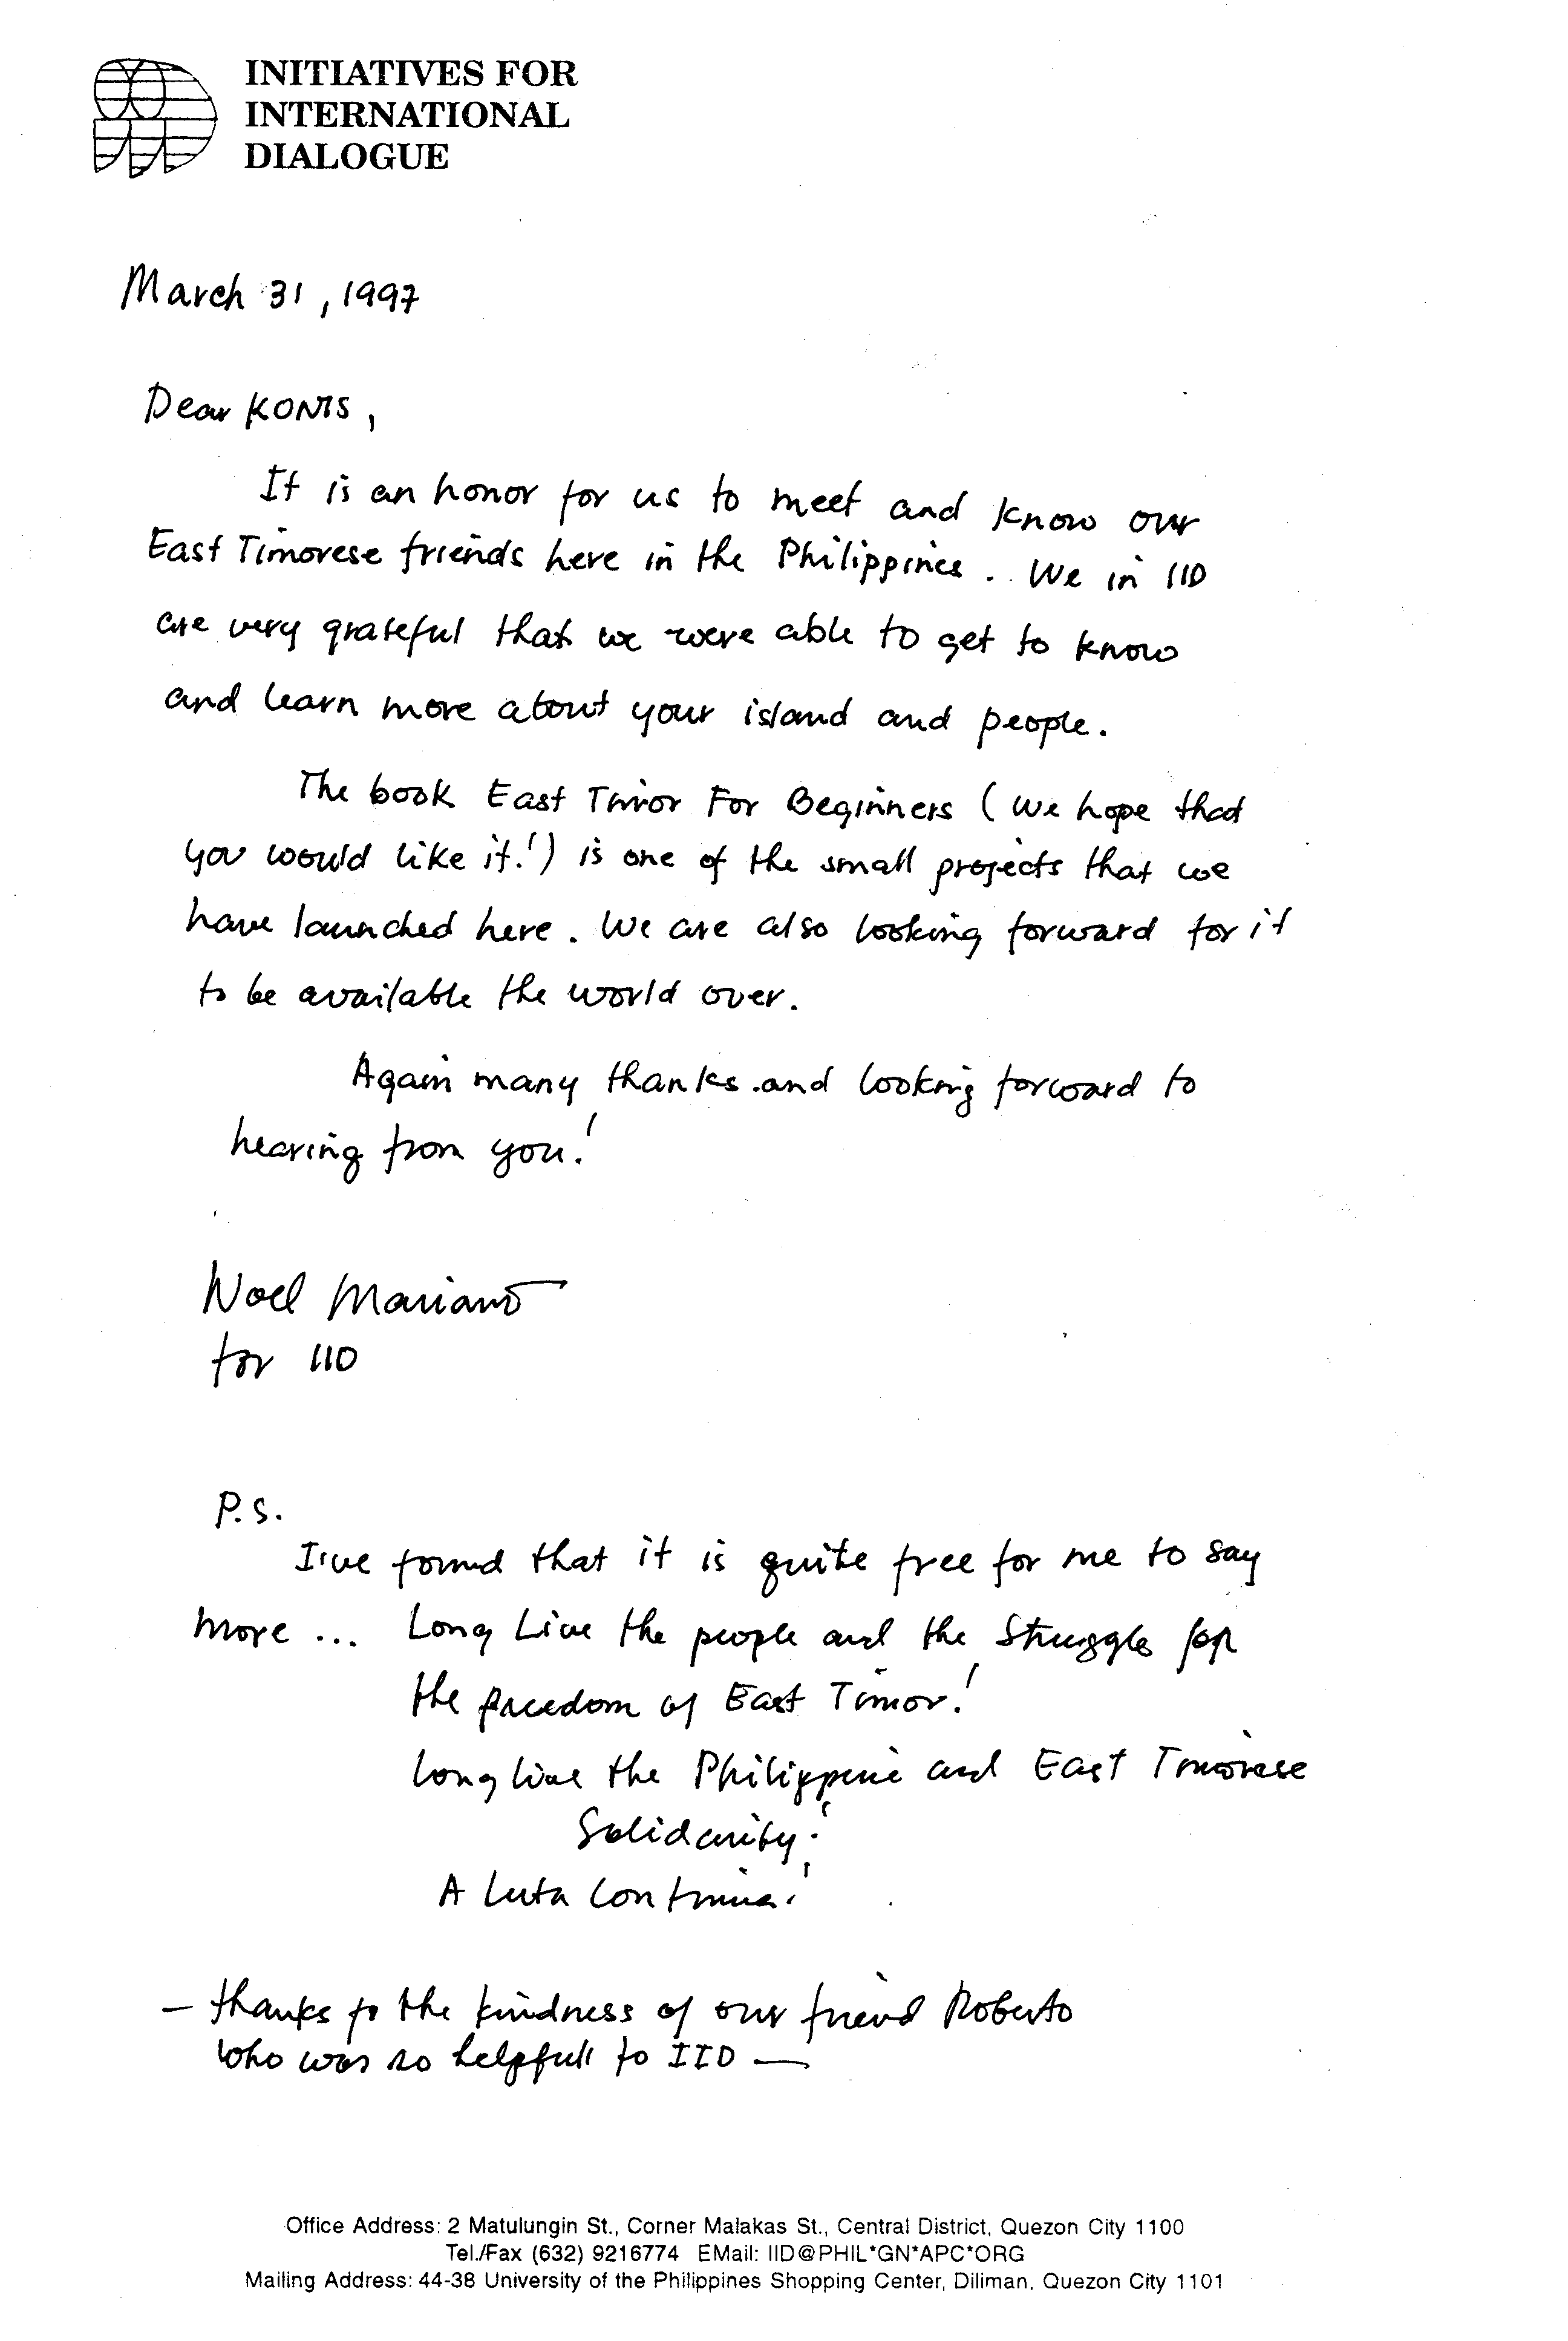 INITIATIVES FOR
INTERNATIONAL
DIALOGUE
March 31, 1997
Dear KONIS,
It is an honor for us to meet and know our
East Timorese friends here in the Philippines. We in IID
are very grateful that we were able to get to know
and learn more about your island and people.
The book East Timor For Beginners (we hope that
you would like it!) is one of the small projects that we
have launched here. We are also looking forward for it
to be available the world over.
Again many thanks and looking forward to
hearing from you!
Noel Mariano
for IID
P.S.
I've found that it is quite free for me to say
more ... Long Live the people and the struggle for
the freedom of East Timor!
Long live the Philippine and East Timorese
Solidarity!
A Luta Continua!
— thanks to the kindness of our friend Roberto
who was so helpfull to IID —
Office Address: 2 Matulungin St., Corner Malakas St., Central District, Quezon City 1100
Tel./Fax (632) 9216774 EMail: IID@PHIL*GN*APC*ORG
Mailing Address: 44-38 University of the Philippines Shopping Center, Diliman, Quezon City 1101